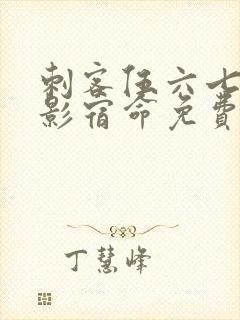 刺客伍六七
影宿命免费
丁慧峰